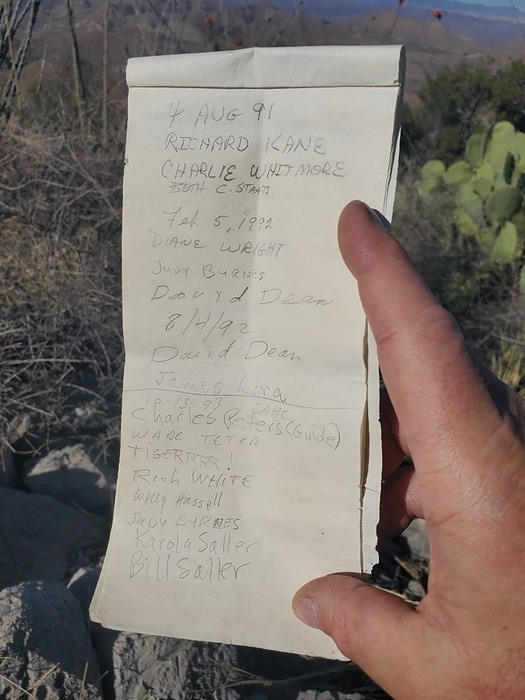 4 AUG 91
RICHARD KANE
CHARLIE WHITMORE
C. STAATS
Feb. 5, 1992
DIANE WRIGHT
JUDY BYRNES
David Dean
8/4/92
David Dean
James Lira
10-13-93 SAHC
Charles Peters (Guide)
WARE TETER
TIGERRRR!
Rich WHITE
Wally Hassell
JUDY BYRNES
Karola Saller
Bill Saller